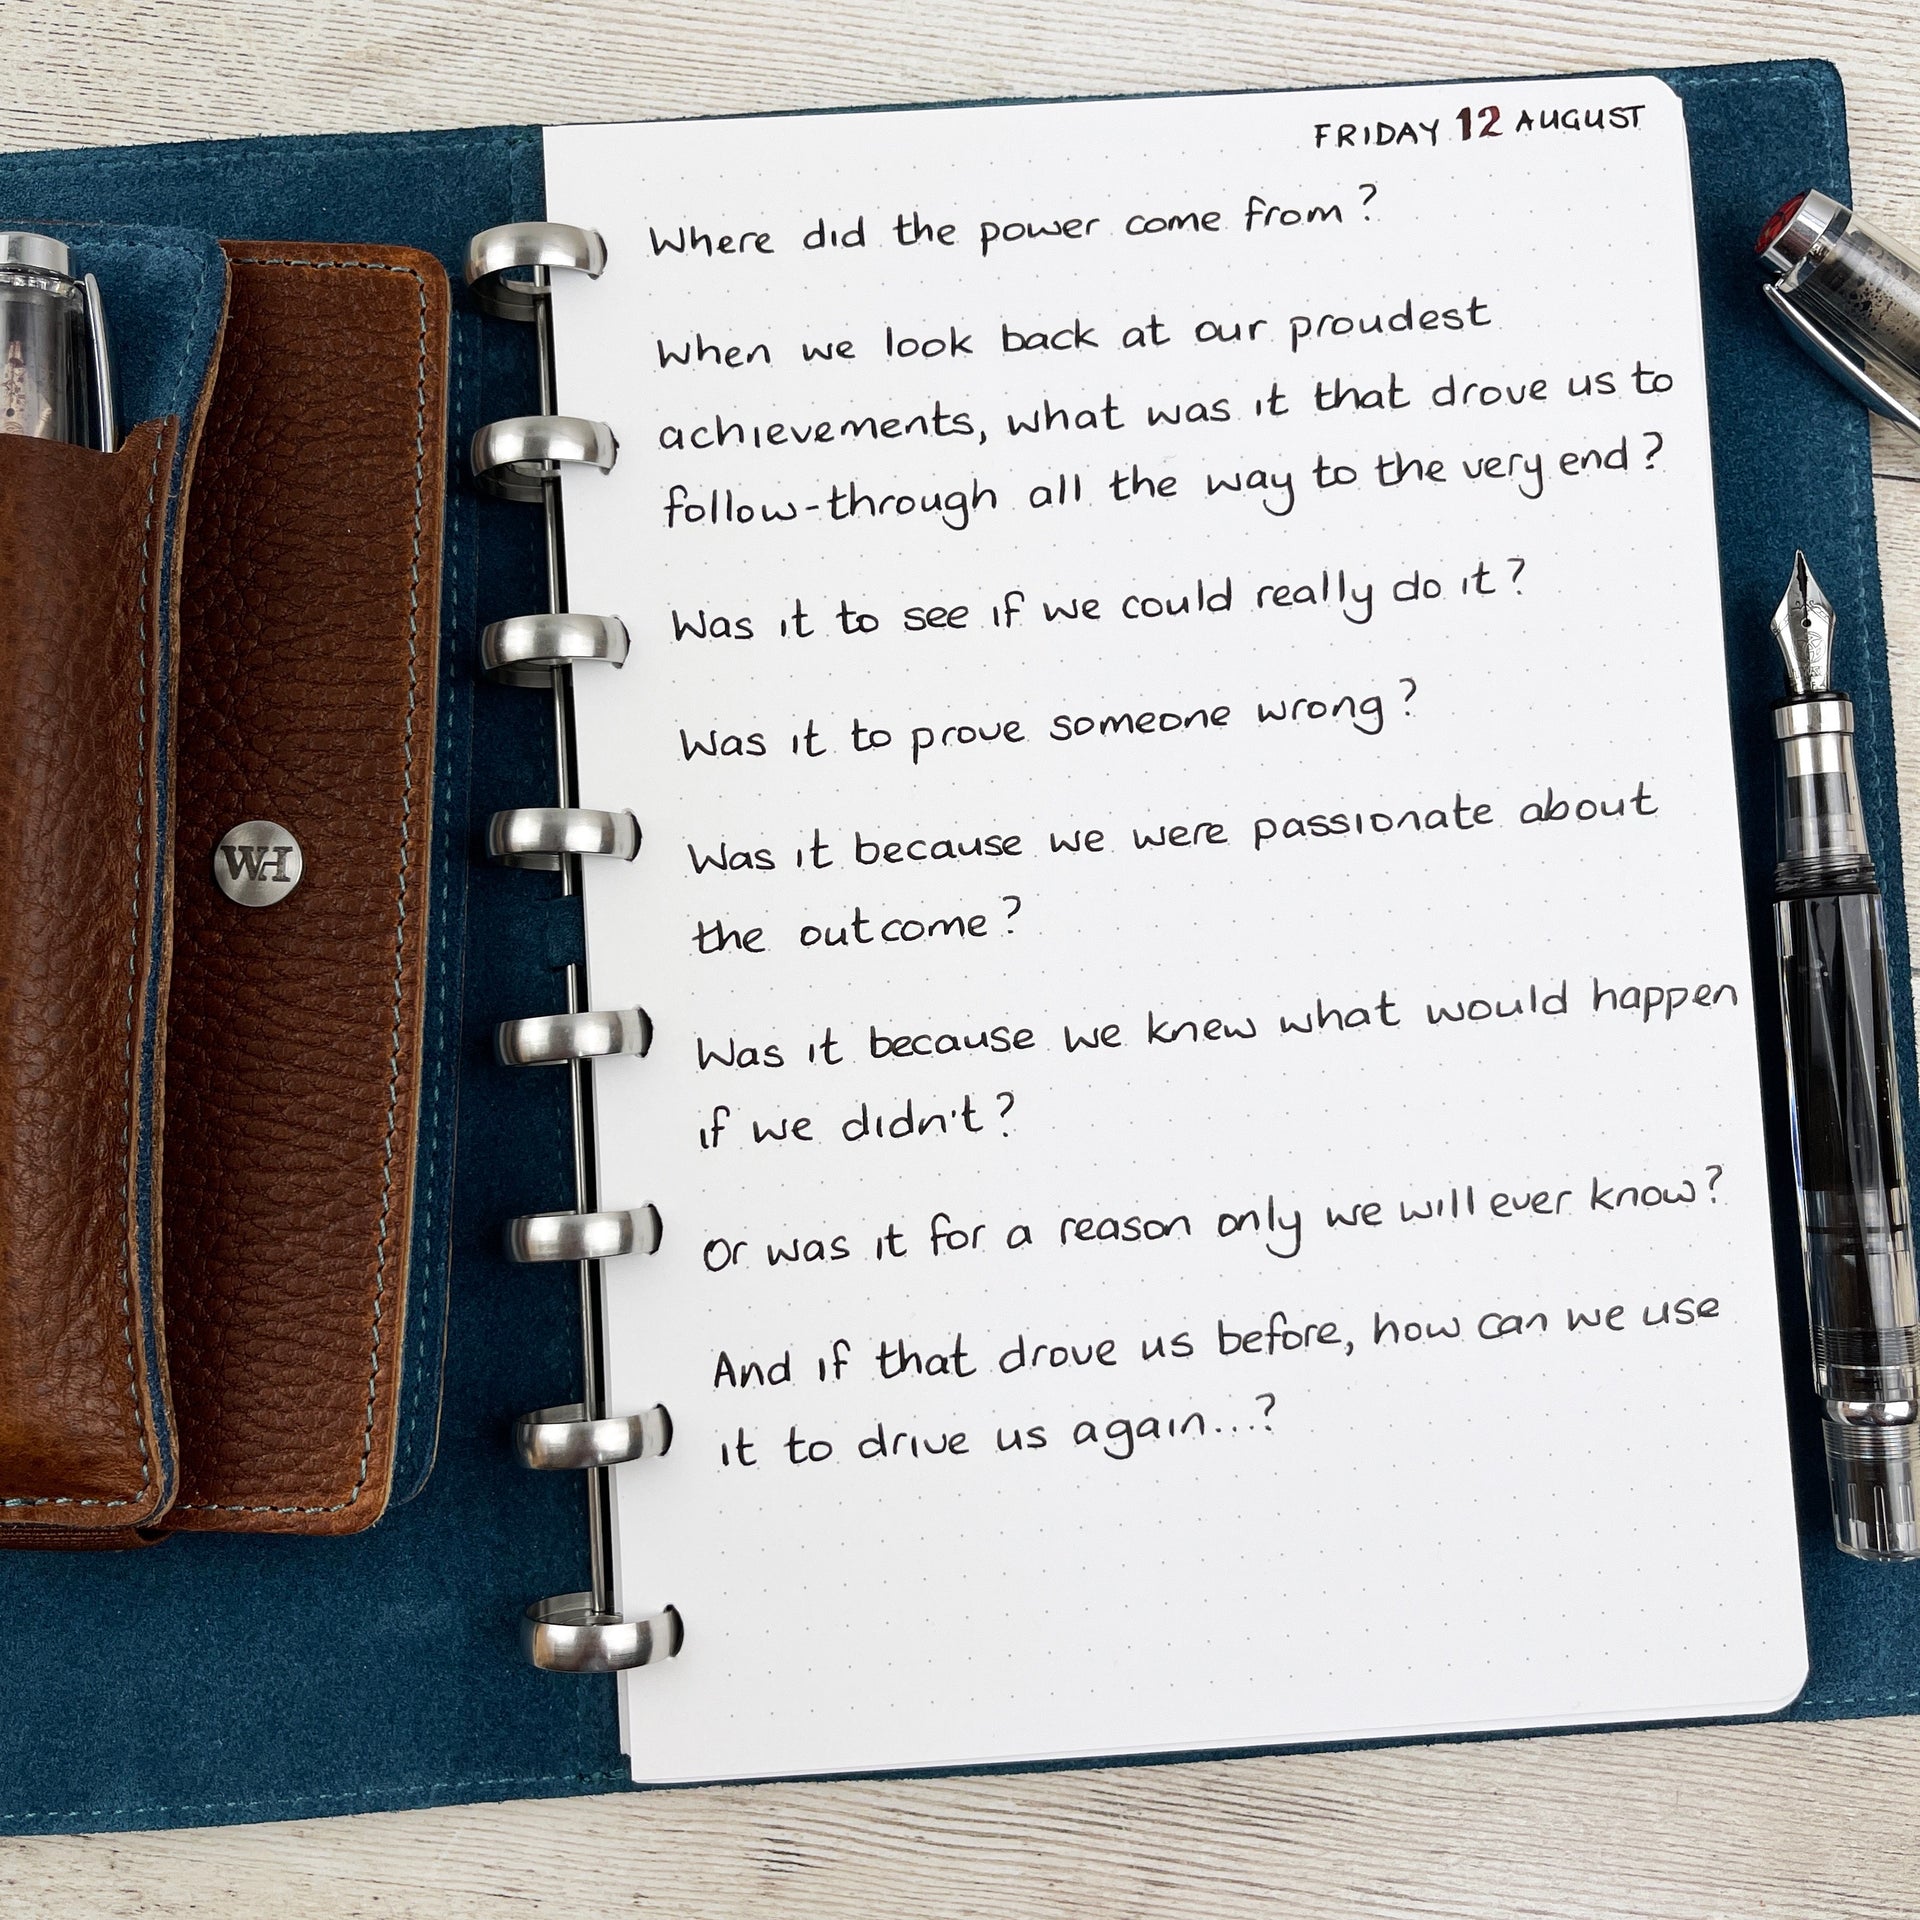 WH
FRIDAY 12 AUGUST
Where did the power come from?
When we look back at our proudest
achievements, what was it that drove us to
follow-through all the way to the very end?
Was it to see if we could really do it?
Was it to prove someone wrong?
Was it because we were passionate about
the outcome?
Was it because we knew what would happen
if we didn't?
Or was it for a reason only we will ever know?
And if that drove us before, how can we use
it to drive us again...?